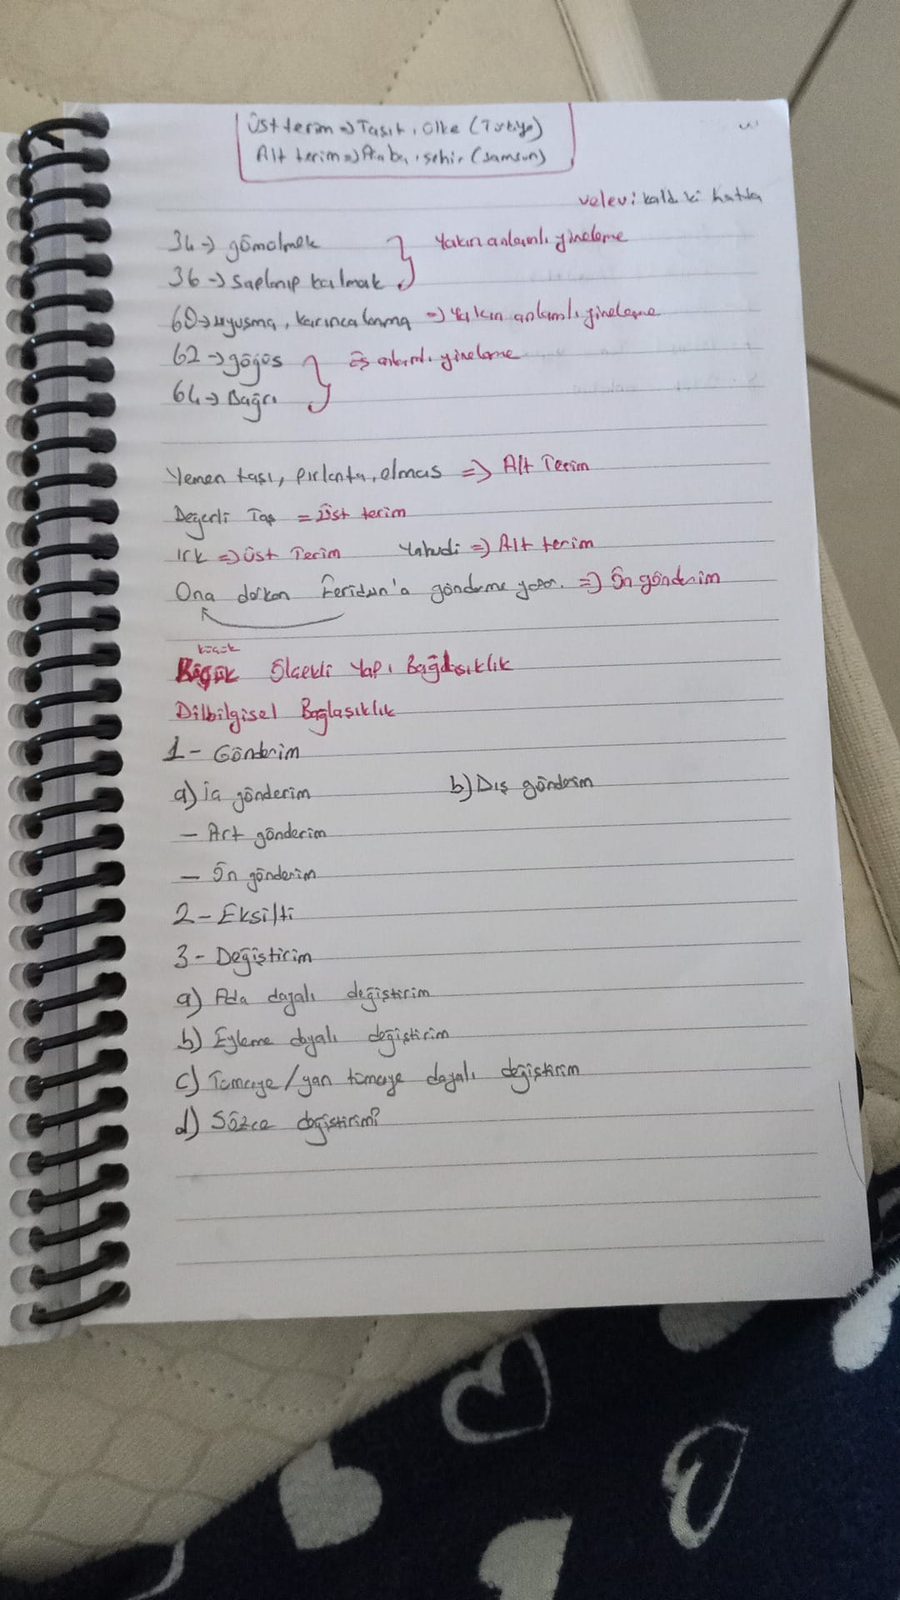 Üst terim => Taşıt, Ülke (Türkiye)
Alt terim => Araba, şehir (Samsun)
velev: kaldı ki hatta
34 -> gömülmek } Yakın anlamlı yineleme
36 -> Saplanıp kalmak
60 -> uyuşma, karıncalanma => Yakın anlamlı yineleme
62 -> göğüs } Eş anlamlı yineleme
64 -> Bağrı
Yemen taşı, pırlanta, elmas => Alt Terim
Değerli Taş = Üst terim
Irk => Üst Terim Yahudi => Alt terim
Ona derken Feridun'a gönderme yapar. => Ön gönderim
küçük
Küçük Ölçekli Yapı Bağdaşıklık
Dilbilgisel Bağlaşıklık
1- Gönderim
a) İç gönderim b) Dış gönderim
- Art gönderim
- Ön gönderim
2- Eksilti
3- Değiştirim
a) Ada dayalı değiştirim
b) Eyleme dayalı değiştirim
c) Tümceye/yan tümceye dayalı değiştirim
d) Sözce değiştirimi